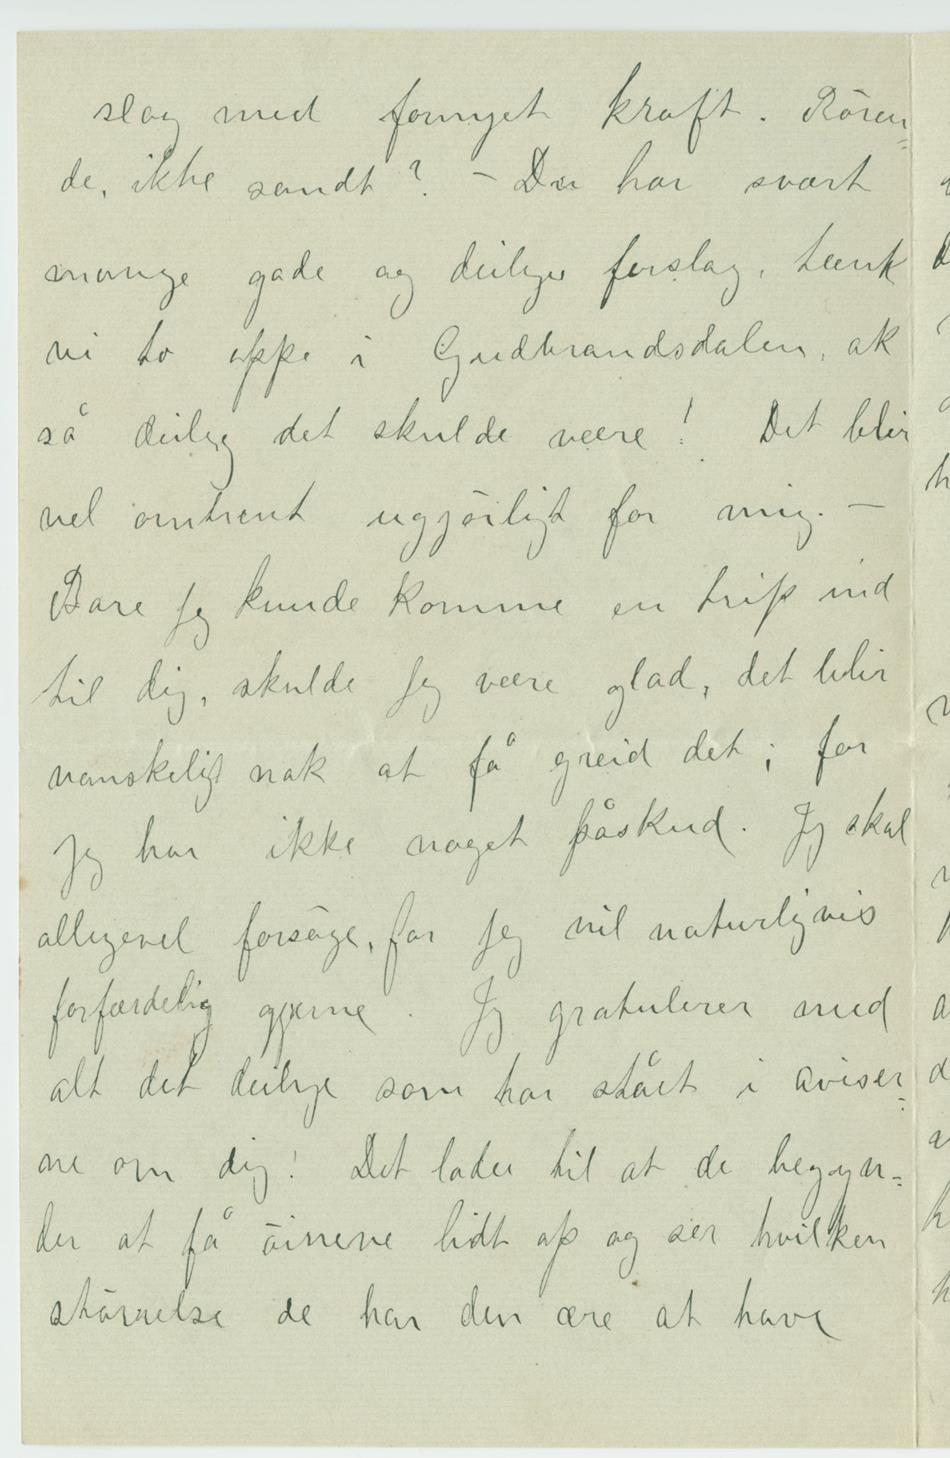 slag med fornyet kraft. Rören=
de, ikke sandt? – Du har svært
mange gode og deilige forslag, tænk
vi to oppe i Gudbrandsdalen, ak
så deilig det skulde være! Det blir
vel omtrent ugjörligt for mig. –
Bare jeg kunde komme en trip ind
til dig, skulde jeg være glad, det blir
vanskeligt nok at få greid det; for
jeg har ikke noget påskud. Jeg skal
alligevel forsöge, for jeg vil naturligvis
forfærdelig gjerne. Jeg gratulerer med
alt det deilige som har stået i aviser=
ne om dig! Det lader til at de begyn=
der at få öinene lidt op og ser hvilken
störrelse de har den ære at have